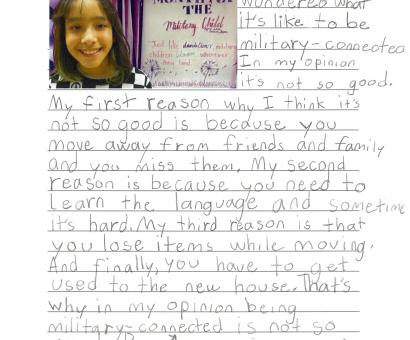 MONTH FOR
THE
Military Child
Just like dandelions, military
children bloom wherever
they land.
wondered what
it's like to be
military-connected
In my opinion
it's not so good.
My first reason why I think it's
not so good is because you
move away from friends and family
and you miss them. My second
reason is because you need to
learn the language and sometime
it's hard. My third reason is that
you lose items while moving.
And finally, you have to get
used to the new house. That's
why in my opinion being
military-connected is not so